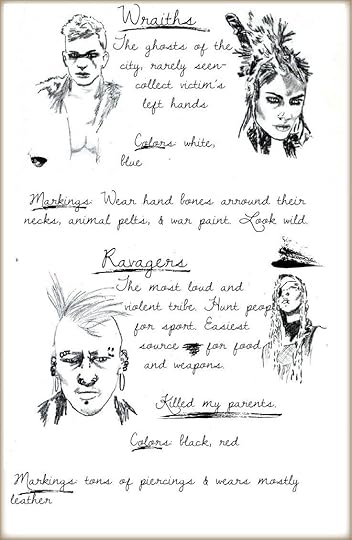 Wraiths
The ghosts of the
city, rarely seen-
collect victim's
left hands
Colors: white,
blue
Markings: Wear hand bones arround their
necks, animal pelts, & war paint. Look wild.
Ravagers
The most loud and
violent tribe. Hunt people
for sport. Easiest
source for food
and weapons.
Killed my parents.
Colors: black, red
Markings: tons of piercings & wears mostly
leather